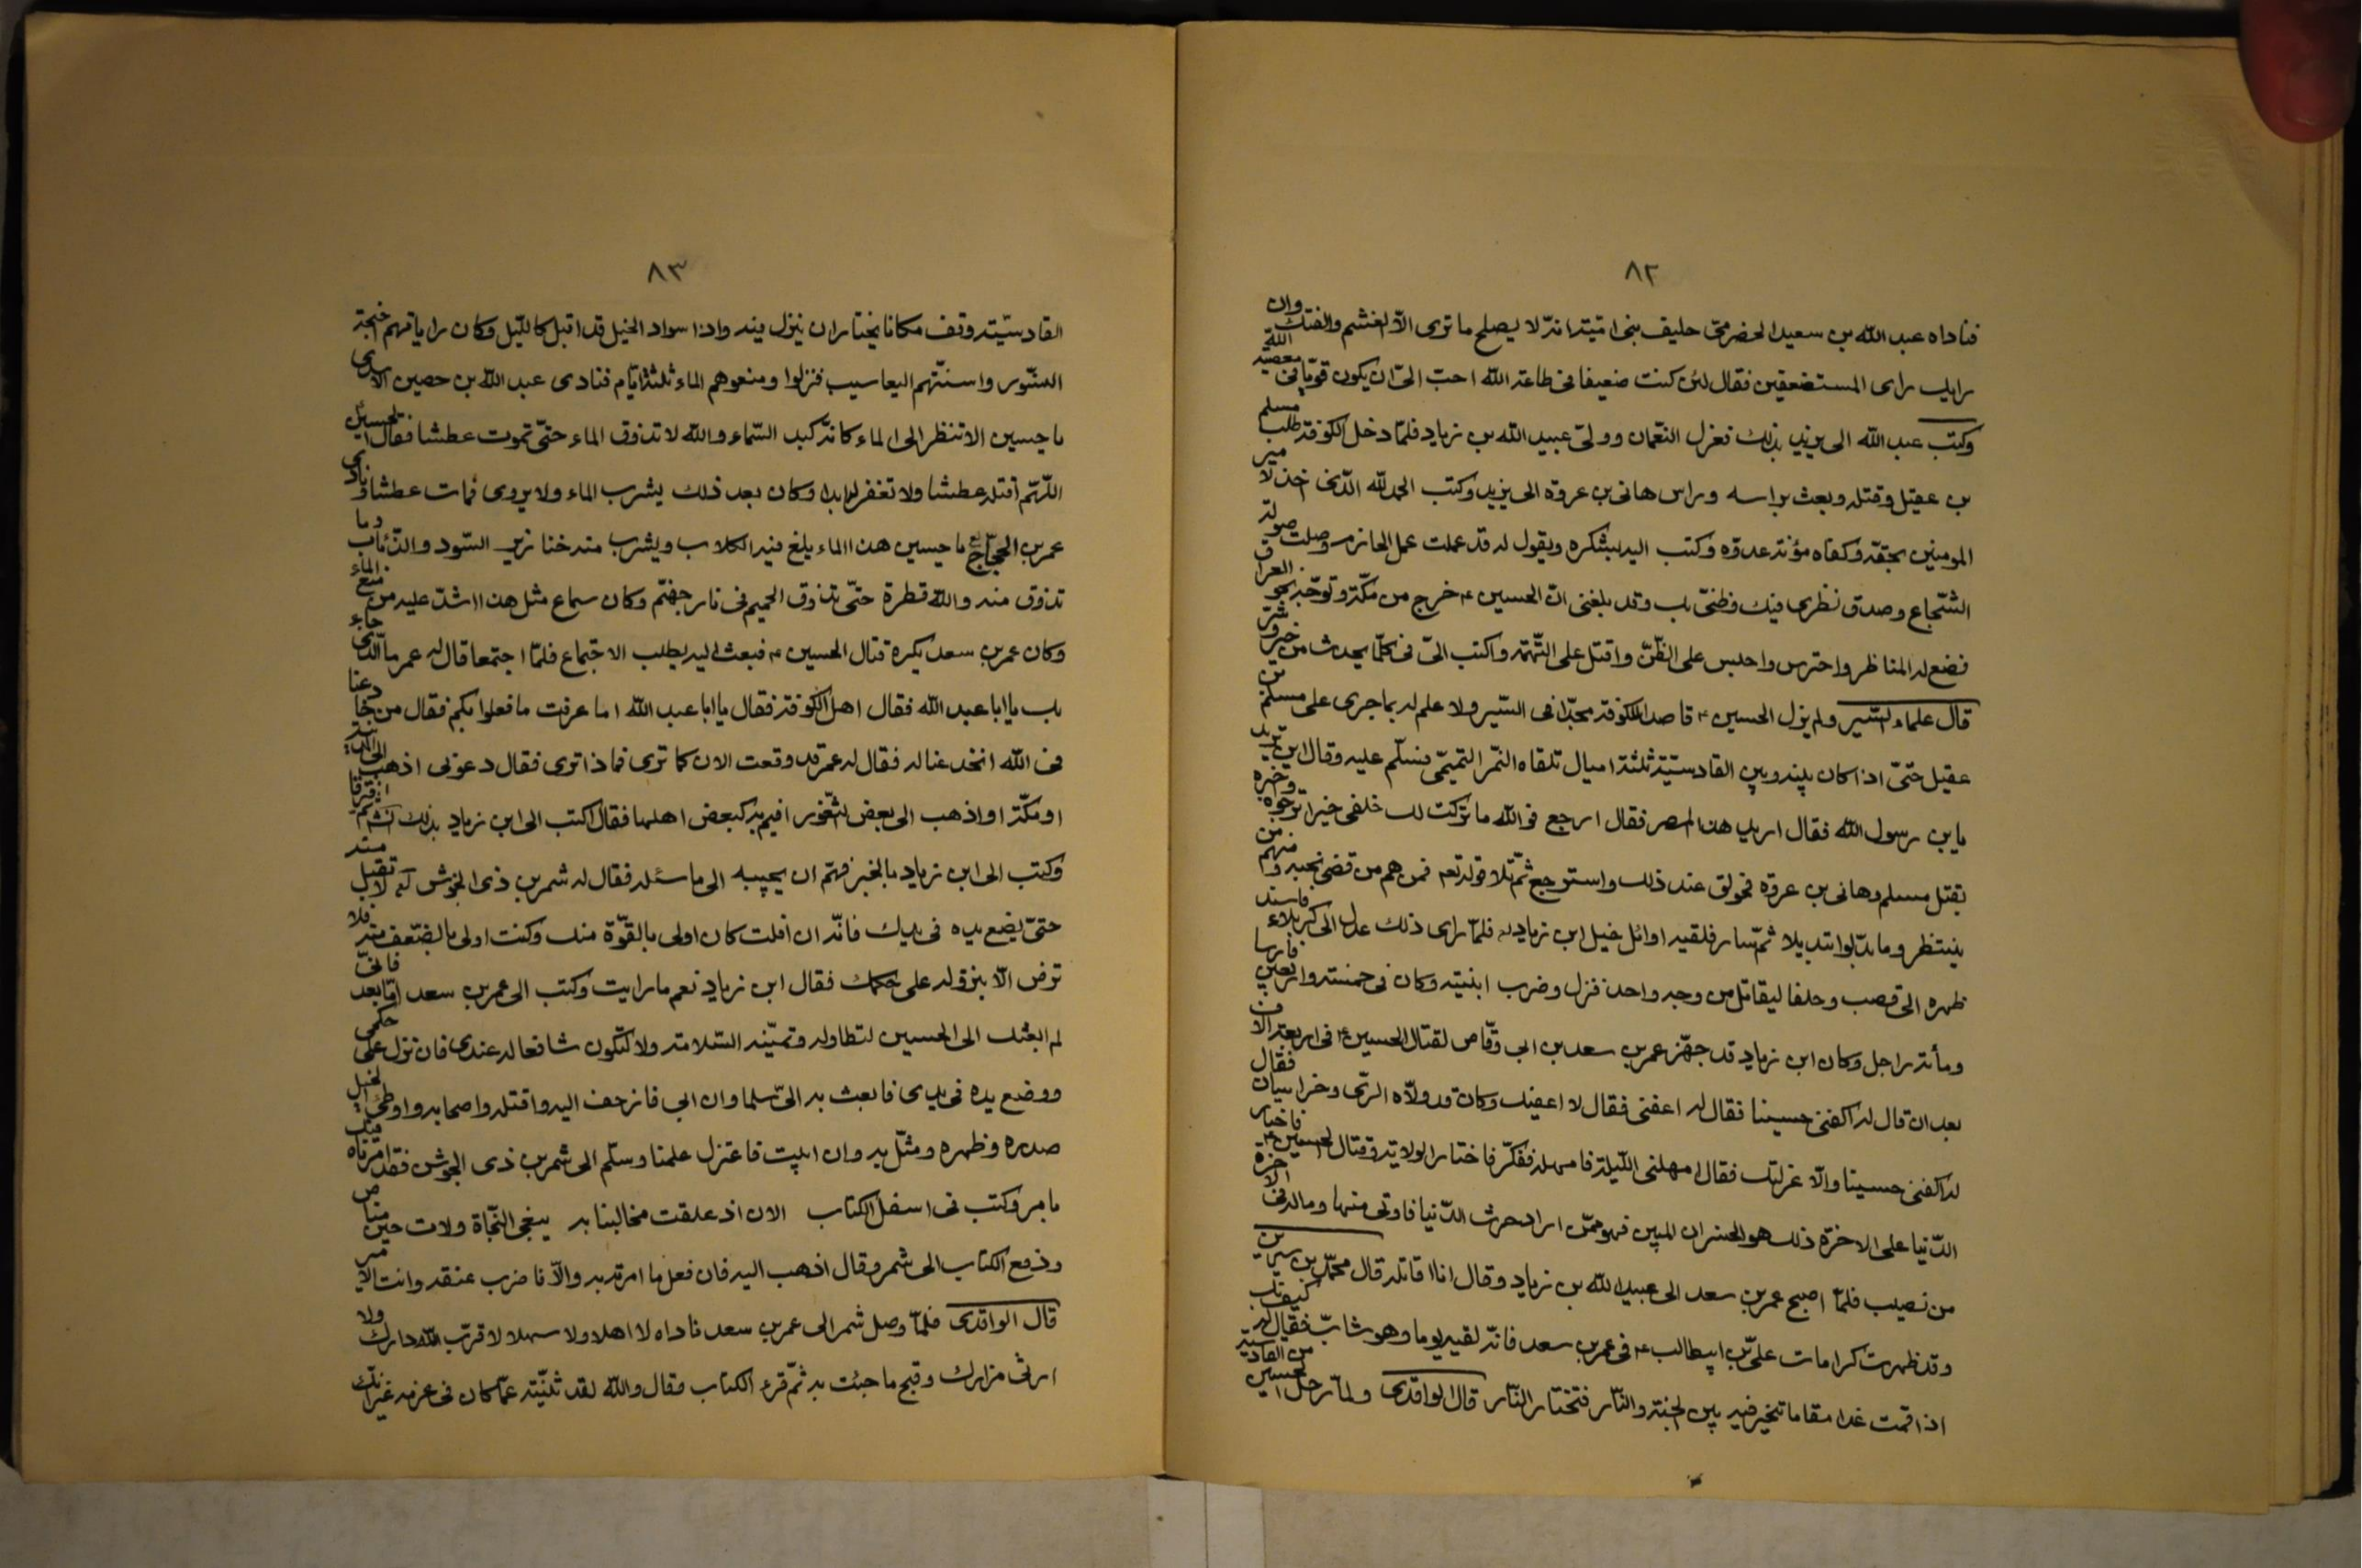 ٨٢
فناداه عبد الله بن سعيد الحضرمى حليف بنى امية انه لا يصلح ما ترى الا الغشم والفتك وان
رايك راى المستضعفين فقال لئن كنت ضعيفا فى طاعة الله احب الى ان يكون قويا فى معصية الله
وكتب عبد الله الى يزيد بذلك فعزل النعمان وولى عبيد الله بن زياد فلما دخل الكوفة طلب مسلم
بن عقيل وقتله وبعث براسه وراس هانى بن عروة الى يزيد وكتب الحمد لله الذى اخذ لا مير
المومنين بحقه وكفاه مؤنة عدوه وكتب اليه يشكره ويقول له قد عملت عمل الحازم وصلت صولة
الشجاع وصدق نظرى فيك وظنى بك وقد بلغنى ان الحسين ع خرج من مكة وتوجه نحو العراق
فضع له المناظر واحترس واحبس على الظن واقتل على التهمة واكتب الى فى كلما يحدث من خير وشر
قال علماء السير ولم يزل الحسين ع قاصد الكوفة مجدا فى السير ولا علم له بما جرى على مسلم بن
عقيل حتى اذا كان بينه وبين القادسية ثلثة اميال تلقاه الحر التميمى فسلم عليه وقال اين تريد
يابن رسول الله فقال اريد هذا المصر فقال ارجع فو الله ما تركت لك خلفى خيرا ترجوه وخبره
بقتل مسلم وهانى بن عروة فحولق عند ذلك واسترجع ثم تلا قوله تعه فمنهم من قضى نحبه ومنهم من
ينتظر وما بدلوا تبديلا ثم سار فلقيه اوائل خيل ابن زياد له فلما راى ذلك عدل الى كربلاء فاسند
ظهره الى قصب وحلفا ليقاتل من وجه واحد فنزل وضرب ابنيته وكان فى خمسة واربعين فارسا
ومأته راجل وكان ابن زياد قد جهز عمر بن سعد بن ابى وقاص لقتال الحسين ع فى اربعة الاف
بعد ان قال له اكفنى حسينا فقال له اعفنى فقال لا اعفيك وكان قد ولاه الرى وخراسان فقال
له اكفنى حسينا والا عزلتك فقال امهلنى الليلة فامهله ففكر فاختار الولاية وقتال الحسين ع فاختار
الدنيا على الاخرة ذلك هو الخسران المبين فهو ممن اراد حرث الدنيا فاوتى منها وما له فى الاخرة
من نصيب فلما اصبح عمر بن سعد الى عبيد الله بن زياد وقال انا اقاتله قال محمد بن سيرين
وقد ظهرت كرامات على بن ابيطالب ع فى عمر بن سعد فانه لقيه يوما وهو شاب فقال له كيف بك
اذا قمت غدا مقاما تخير فيه بين الجنة والنار فتختار النار قال الواقدى ولما رحل الحسين من القادسية
٨٣
القادسية وقف مكانا يختار ان ينزل فيه واذا سواد الخيل قد اقبل كالليل وكان راياتهم اجنحة
النسور واسنتهم اليعاسيب فنزلوا ومنعوهم الماء ثلثة ايام فنادى عبد الله بن حصين الاسدى
يا حسين الا تنظر الى الماء كانه كبد السماء والله لا تذوق الماء حتى تموت عطشا فقال الحسين
اللهم اقتله عطشا ولا تغفر له ابدا وكان بعد ذلك يشرب الماء ولا يروى فمات عطشا ونادى
عمر بن الحجاج يا حسين هذا الماء يلغ فيه الكلاب ويشرب منه خنازير السود والذئاب وما
تذوق منه والله قطرة حتى تذوق الحميم فى نار جهنم وكان سماع مثل هذا اشد عليه من منع الماء
وكان عمر بن سعد يكره قتال الحسين ع فبعث اليه يطلب الاجتماع فلما اجتمعا قال له عمر ما الذى جاء
بك يا ابا عبد الله فقال اهل الكوفة فقال يا ابا عبد الله اما عرفت ما فعلوا بكم فقال من خادعنا
فى الله انخدعنا له فقال له عمر قد وقعت الان كما ترى فما ذا ترى فقال دعونى اذهب الى المدينة
او مكة او اذهب الى بعض الثغور اقيم به كبعض اهلها فقال اكتب الى ابن زياد بذلك ثم افترقا
وكتب الى ابن زياد بالخبر فهم ان يجيبه الى ما سئله فقال له شمر بن ذى الجوش لا تقبل منه
حتى يضع يده فى يدك فانه ان افلت كان اولى بالقوة منك وكنت اولى بالضعف منه فلا
ترض الا بنزوله على حكمك فقال ابن زياد نعم ما رايت وكتب الى عمر بن سعد اما بعد فانى
لم ابعثك الى الحسين لتطاوله وتمنيه السلامة ولا لتكون شافعا له عندى فان نزل على حكمى
ووضع يده فى يدى فابعث به الى سلما وان ابى فازحف اليه واقتله واصحابه واوطئ الخيل
صدره وظهره ومثل به وان ابيت فاعتزل عملنا وسلم الى شمر بن ذى الجوش فقد امرناه فيك
بامر وكتب فى اسفل الكتاب الان اذ علقت مخالبنا به يبغى النجاة ولات حين مناص
ودفع الكتاب الى شمر وقال اذهب اليه فان فعل ما امرته به والا فاضرب عنقه وانت الامير
قال الواقدى فلما وصل شمر الى عمر بن سعد ناداه لا اهلا ولا سهلا لا قرب الله دارك ولا
ادنى مزارك وقبح ما جئت به ثم قرء الكتاب فقال والله لقد ثنيته عما كان فى عزمه غير انك